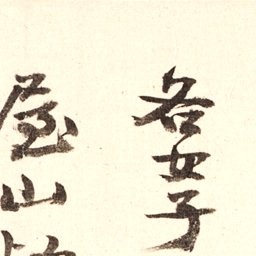 各女子
屋山